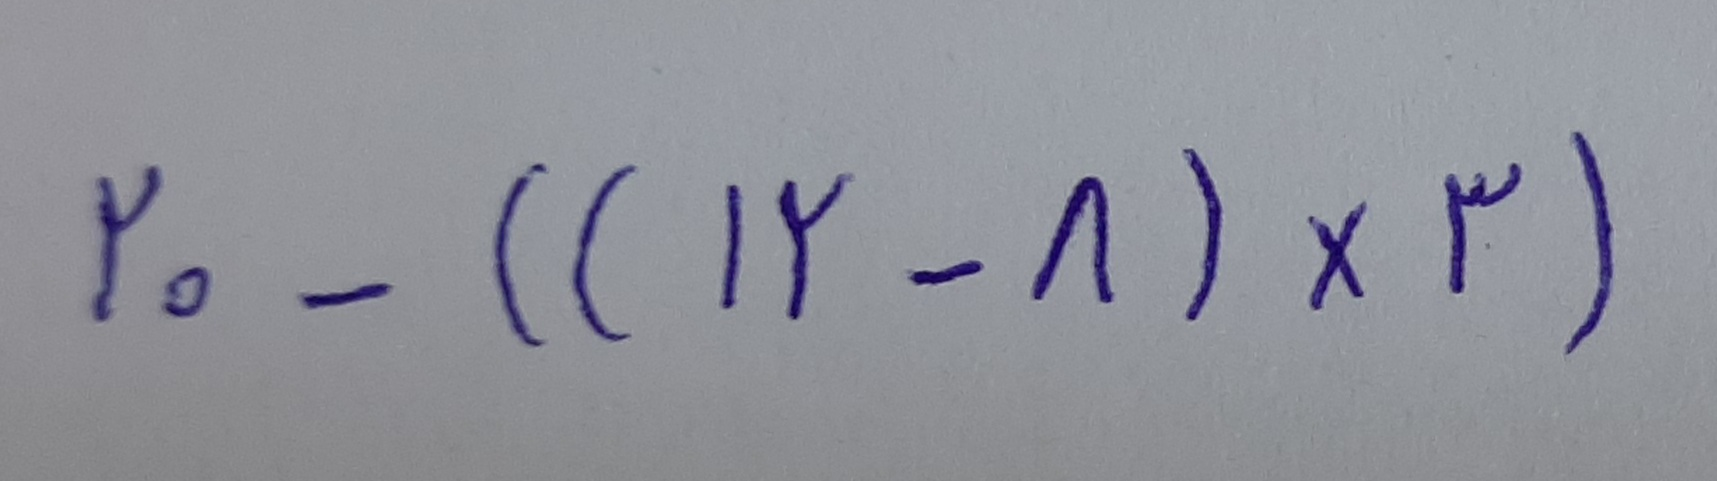 ۲۰ - ((۱۲ - ۸) × ۳)